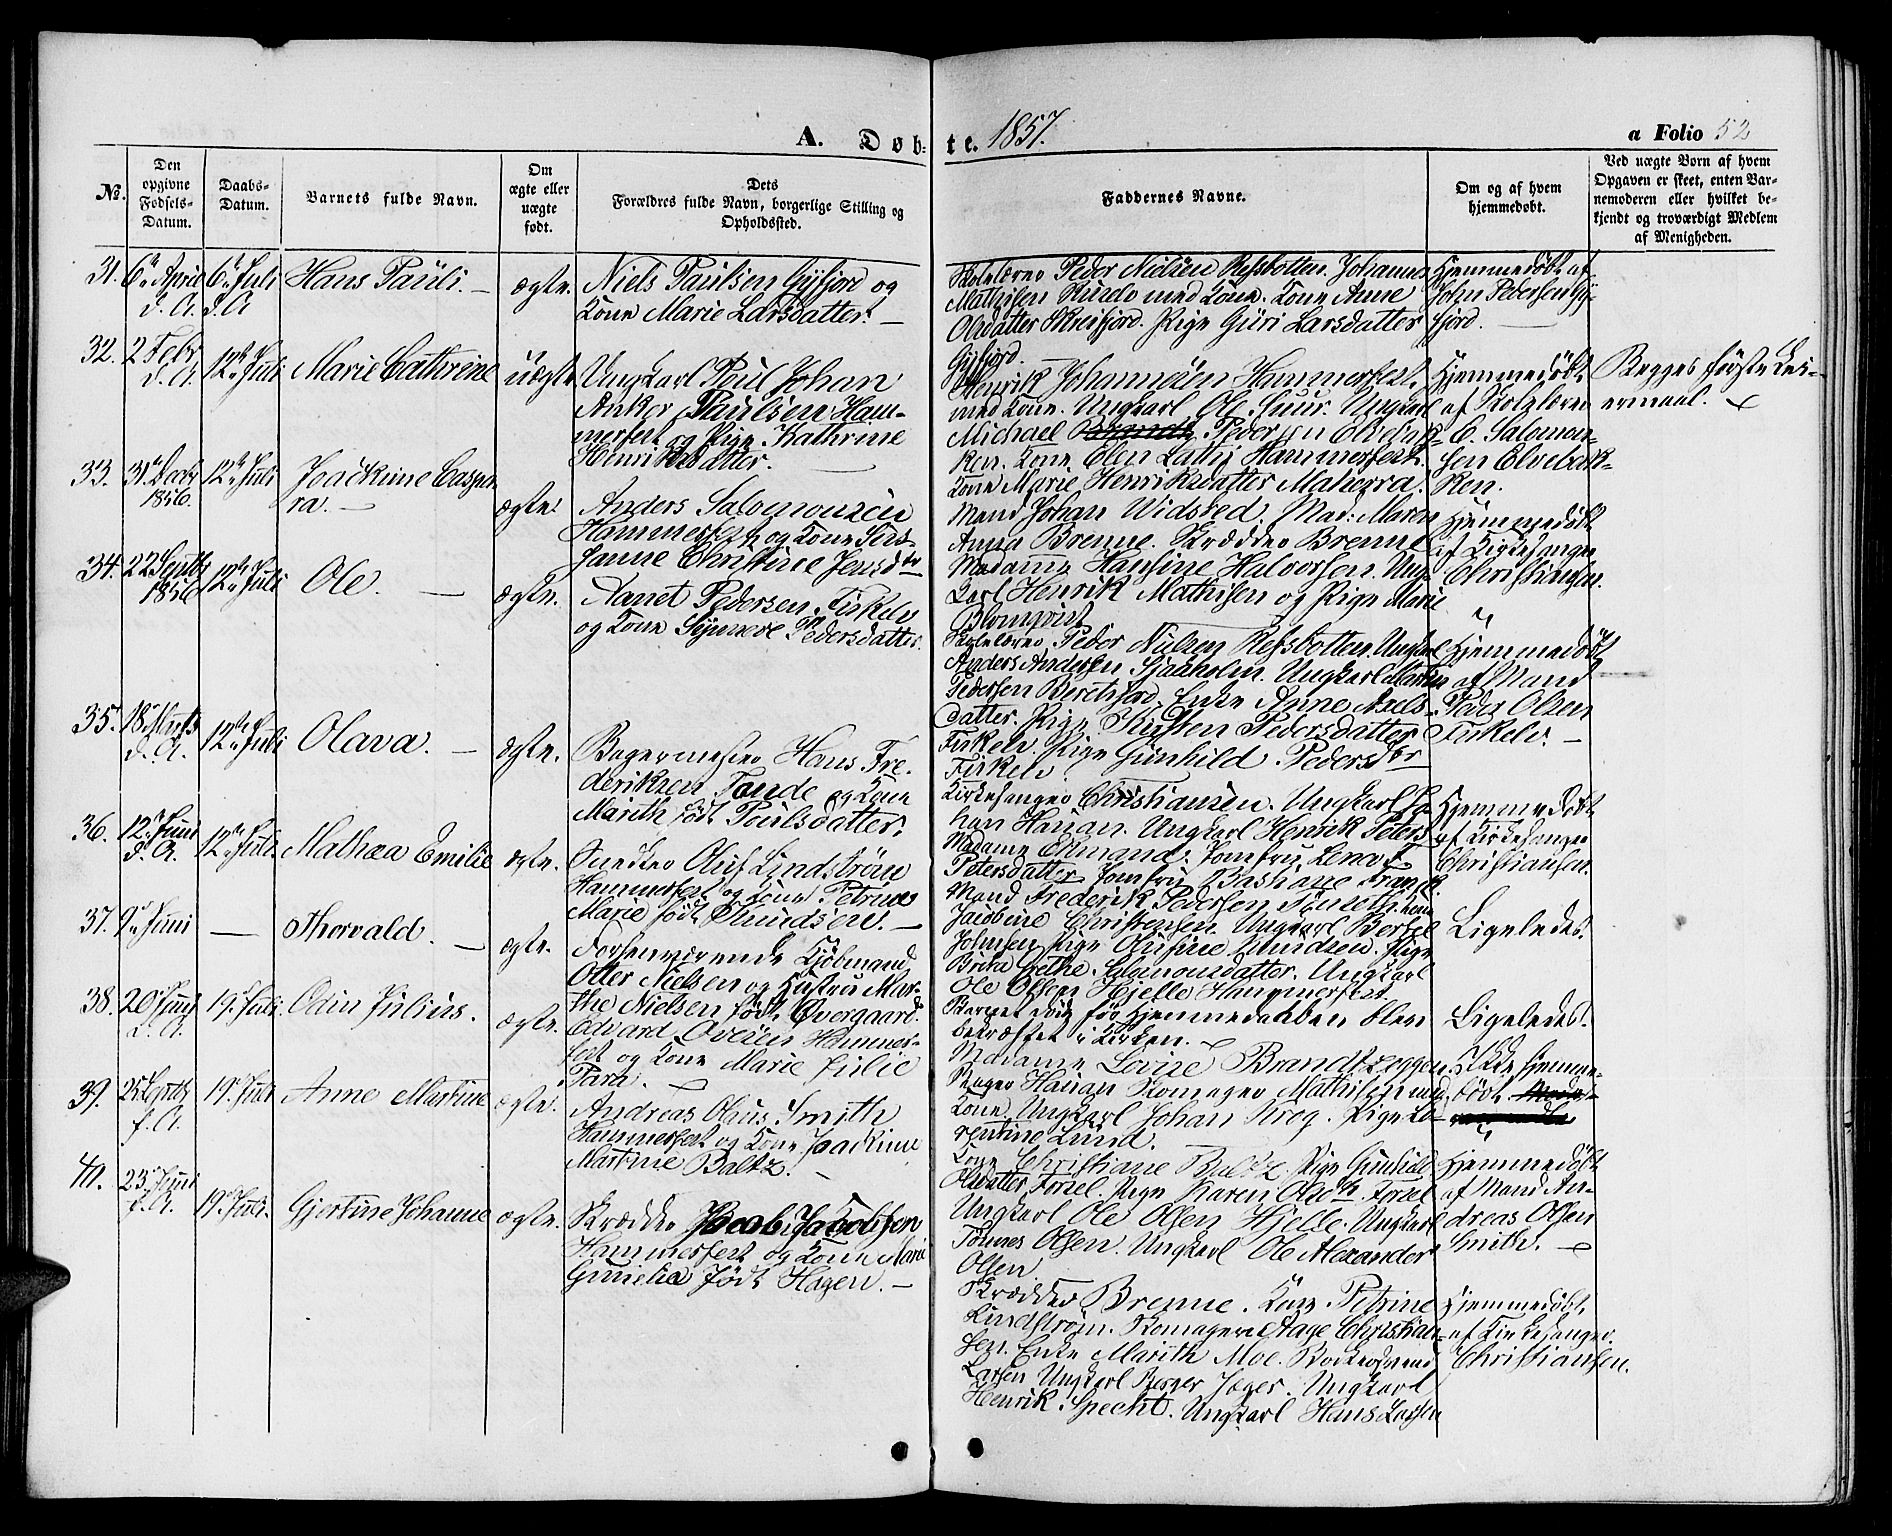 A. Døb-
te. 1857.
a Folio 52
No.
Den opgivne Fødsels-Datum.
Daabs-Datum.
Barnets fulde Navn.
Om ægte eller uægte født.
Dets Forældres fulde Navn, borgerlige Stilling og Opholdssted.
Faddernes Navne.
Om og af hvem hjemmedøbt.
Ved uægte Børn af hvem Opgaven er skeet, enten Barnemoderen eller hvilket bekjendt og troværdigt Medlem af Menigheden.
31. 6te April d. A. 6te Juli d. A. Hans Pauli. ægte.
Niels Paulsen Gyfjord og
Kone Marie Larsdatter.
Skolelærer Peder Nielsen Refsbotten. Johannes
Mathisen Kundo med Kone. Kone Anne
Olsdatter Skreifjord. Pige Guri Larsdatter
Gyfjord.
Hjemmedøbt af
John Pedersen Gy-
fjord.
32. 2 Febr. d. A. 12te Juli Marie Cathrine uægte
Ungkarl Poul Johan
Anker Paulsen Ham-
merfest og Pige Kathrine
Henriksdatter.
Henrik Johannesen Hammerfest
med Kone. Ungkarl Ole Suur. Ungkarl
Michael Pedersen Elvebak-
ken. Kone Elen Hammerfest.
Kone Marie Henriksdatter
Hjemmedøbt
af Skolelærer
E. Salomon-
sen Elvebak-
ken.
Begges første Lei-
ermaal.
33. 31te Decbr 1856. 12te Juli Joackime Caspa-
ra. ægte.
Anders Salomonsen
Hammerfest og Kone
Christine Jensdtr
Mand Johan Widsted. Mad: Maren
Anna Brenne. Skrædder Brenne
Madame Hansine Halvorsen. Ung-
karl Henrik Mathisen og Pige Marie
Blomqvist
Hjemmedøbt
af Kirkesanger
Christiansen.
34. 22 Septbr 1856 12te Juli Ole. ægte.
Aanet Pedersen Firkelv
og Kone Synneve Pedersdatter.
Skolelærer Peder Nielsen Refsbotten. Ungkarl
Anders Andersen Sjaaholm. Ungkarl Martin
Pedersen Beretsfjord. Enke Anne Axels-
datter. Pige Kirsten Pedersdatter
Firkelv. Pige Gunhild Pedersdtr
Firkelv
Hjemmedøbt
af Mand
Peder Olsen
Firkelv.
35. 18 Marts d. A. 12te Juli Olava. ægte.
Bagermester Hans Fre-
deriksen Tande og Kone
Marith født Poulsdatter.
Kirkesanger Christiansen. Ungkarl Jo-
han Hauan. Ungkarl Henrik Peters
Madame Ekmand. Jomfru Lena
Petersdatter Jomfru Bashiane Frank.
Hjemmedøbt
af Kirkesanger
Christiansen.
36. 12te Juni d. A. 12te Juli. Mathea Emilie ægte.
Snedker Oluf Lindstrøm
Hammerfest og Kone Petrine
Marie født Knudsen.
Mand Frederik Pedersen Tønseth. Kone
Jacobine Christensen. Ungkarl Berger
Johnsen Pige Olufine Knudsen. Pige
Birthe Grethe Salomonsdatter. Ungkarl
Ole Olsen Hjelle Hammerfest.
Ligeledes.
37. 9de Juni Thorvald. ægte.
Forhenværende Kjøbmand
Otter Nielsen og Hustru Mar-
the Nielsen født Øvergaard.
Barnet døde før Hjemmedaaben blev
bekræftet i Kirken.
Ligeledes.
38. 20de Juni d. A. 19de Juli Odin Julius. ægte.
Edvard Ovesen Hammer-
fest og Kone Marie Julie
Para.
Madame Lovise Brandt
Hauan Mathisen med
Kone. Ungkarl Johan Krog. Pige La-
rentine Lund.
Ikke hjemme-
døbt
39. 25 f. A. 19de Juli Anne Martine ægte.
Andreas Olaus Smith
Hammerfest og Kone Joackime
Martine Baltz.
Kone Christiane Baltz. Pige Gunhild
Olsdatter Forsel. Pige Karen Olsdtr. Forsel
Ungkarl Ole Olsen Hjelle. Ungkarl
Tønnes Olsen. Ungkarl Ole Alexander
Olsen
Hjemmedøbt
af Mand An-
dreas Olsen
Smith.
40. 23de Juni 19de Juli. Gjertine Johanne ægte.
Skrædder Jacob Jacobsen
Hammerfest og Kone Marie
født Hagen.
Skrædder Brenne. Kone Petrine
Lindstrøm. Aage Christian-
sen. Enke Marith Moe.
Larsen Ungkarl Berger Jæger. Ungkarl
Henrik Specht. Ungkarl Hans Larsen
Hjemmedøbt
af Kirkesanger.
Christiansen.